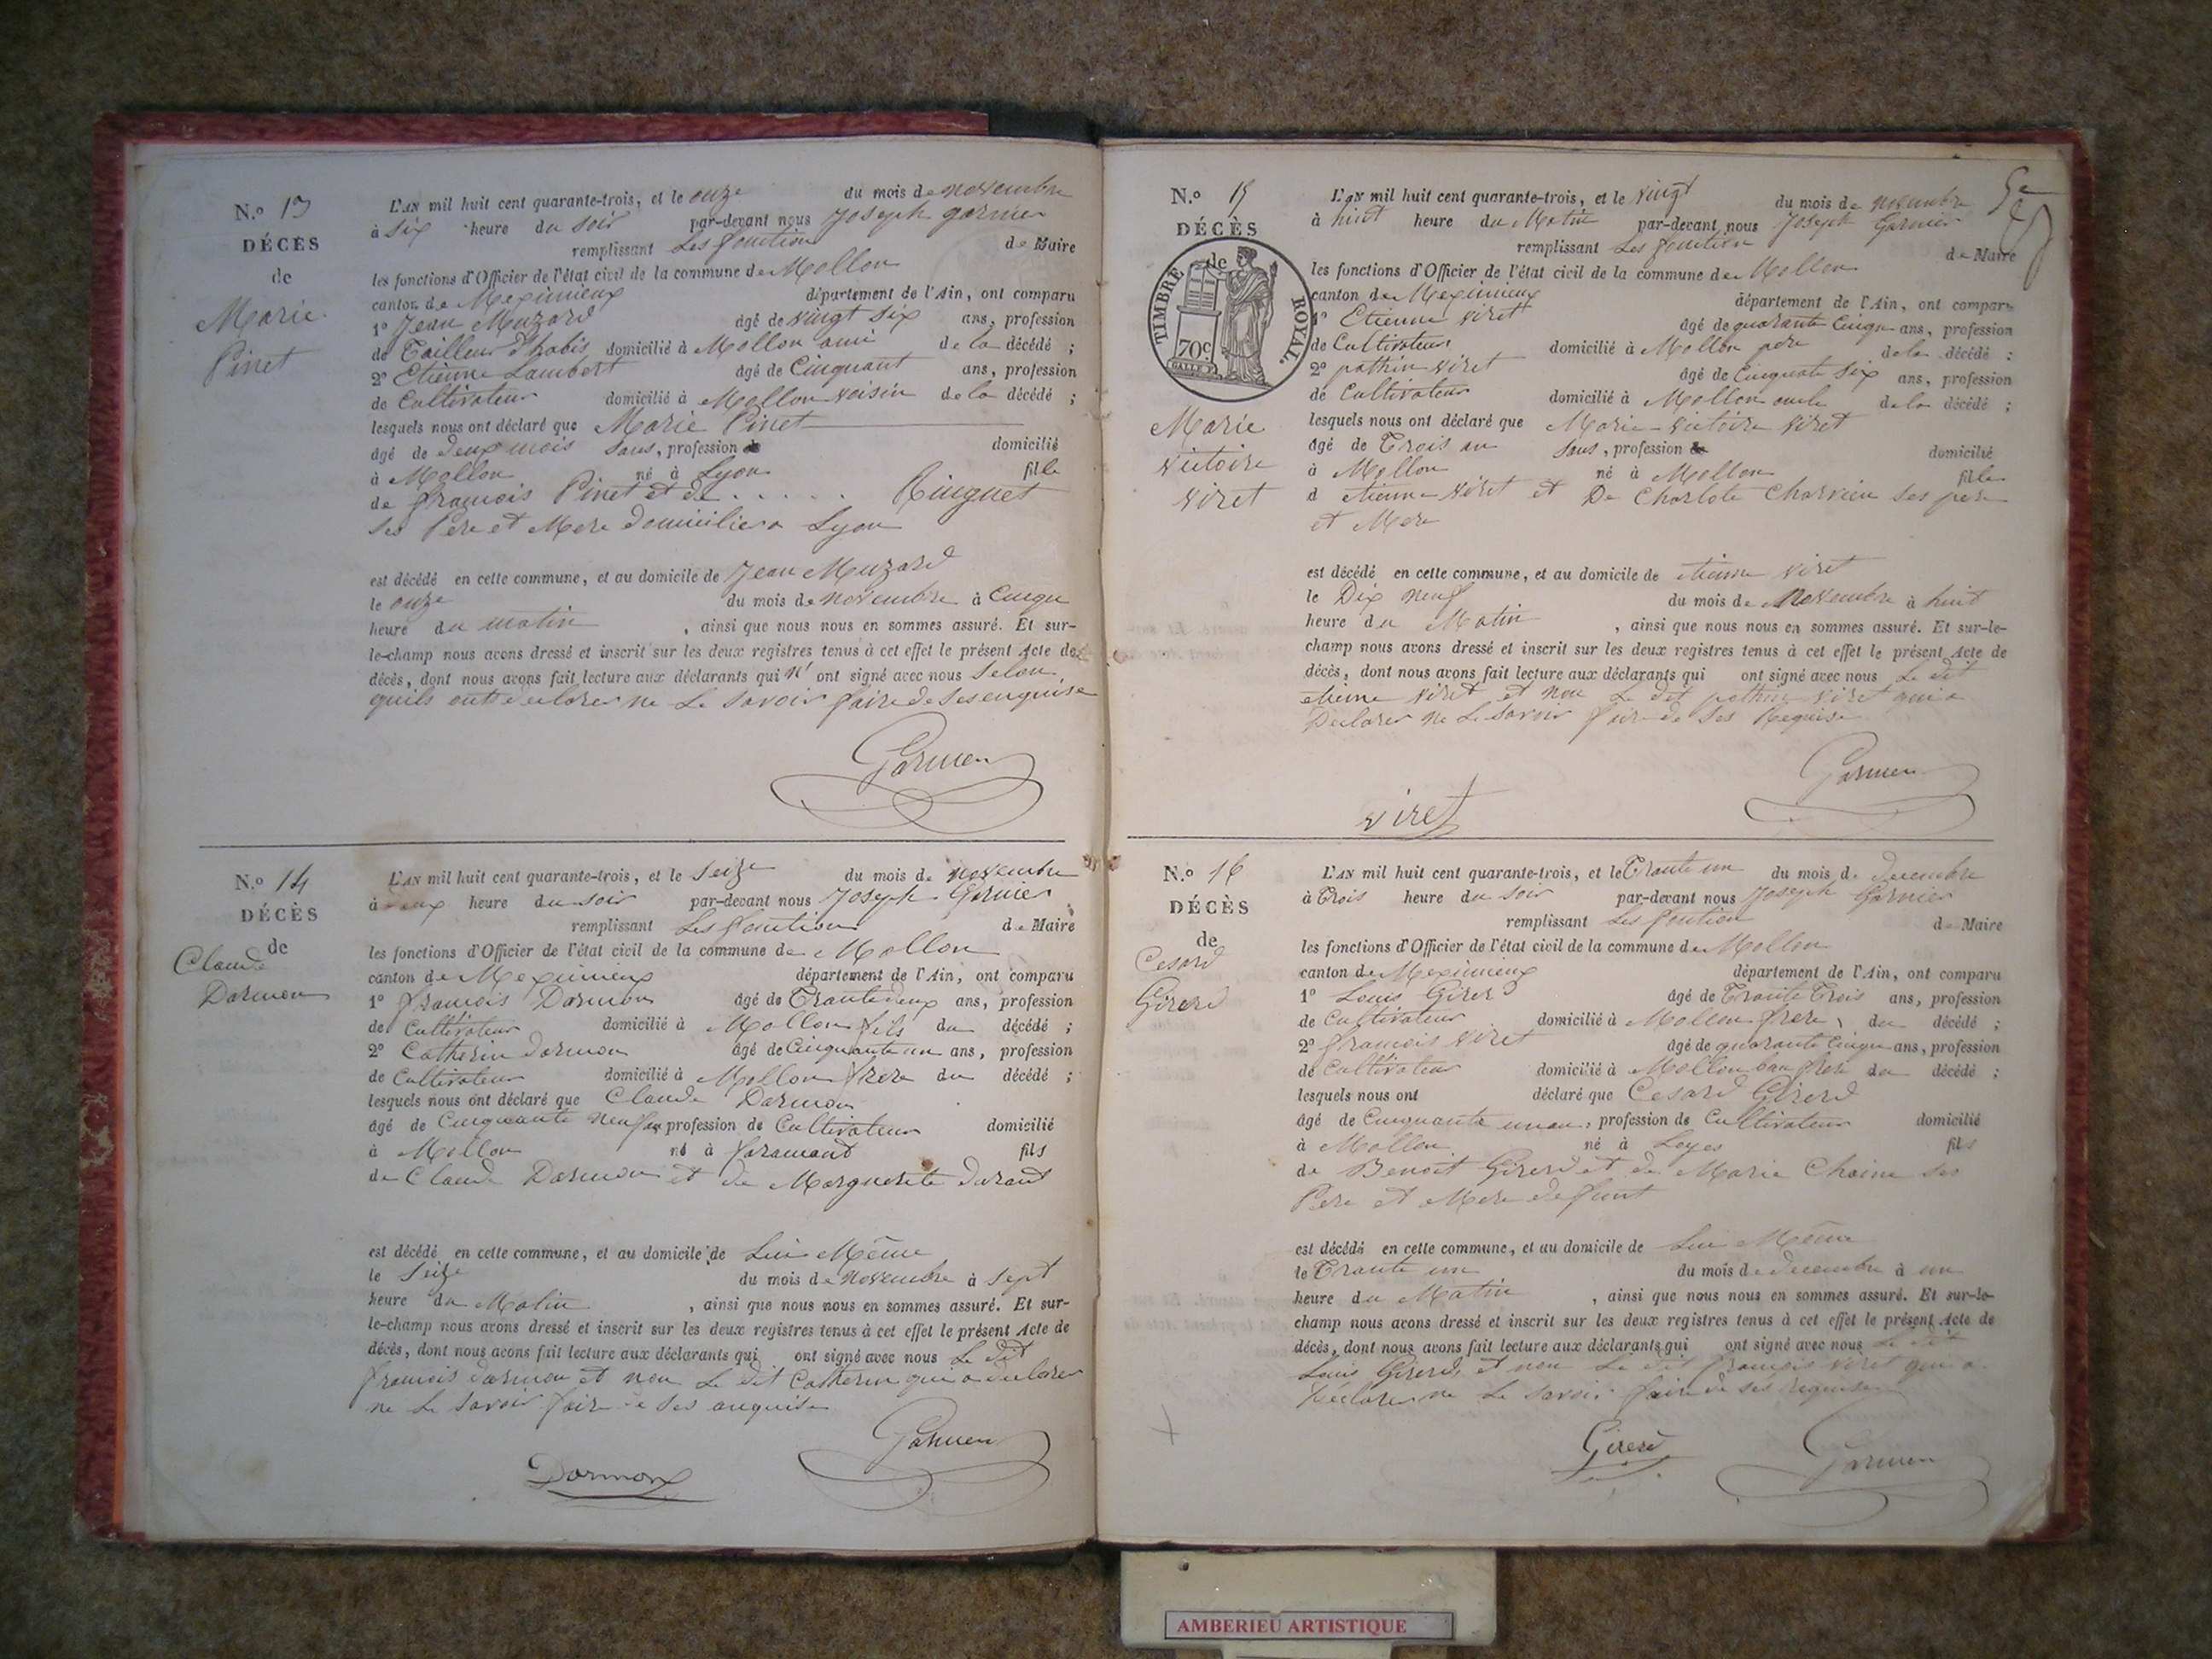 N.o 13
DÉCÈS
de
Marie
Pinet
L'AN mil huit cent quarante-trois, et le onze du mois de novembre
à six heure du soir par-devant nous Joseph garnier
remplissant Les fonction de Maire
les fonctions d'Officier de l'état civil de la commune de Mollon
canton de Meximieux département de l'Ain, ont comparu
1º Jean Muzard âgé de vingt six ans, profession
de Tailleur d'habis domicilié à Mollon ami de la décédé ;
2º Etienne Lambert âgé de Cinquant ans, profession
de Cultivateur domicilié à Mollon voisin de la décédé ;
lesquels nous ont déclaré que Marie Pinet
âgé de deux mois sans, profession de domicilié
à Mollon né à Lyon fille
de francois Pinet et de . . . . . Ringuet
ses Pere et Mere domicilier a Lyon
est décédé en cette commune, et au domicile de Jean Muzard
le onze du mois de novembre à Cinqu
heure du matin , ainsi que nous nous en sommes assuré. Et sur-
le-champ nous avons dressé et inscrit sur les deux registres tenus à cet effet le présent Acte de
décès, dont nous avons fait lecture aux déclarants qui n' ont signé avec nous selon
quils ont declarer ne Le savoir faire de ses enquise
Garnier
N.o 14
DÉCÈS
de
Claude
Darmon
L'AN mil huit cent quarante-trois, et le seize du mois de novembre
à heure du soir par-devant nous Joseph Garnier
remplissant Les fonction de Maire
les fonctions d'Officier de l'état civil de la commune de Mollon
canton de Meximieux département de l'Ain, ont comparu
1º francois Darmon âgé de Trante deux ans, profession
de Cultivateur domicilié à Mollon fils du décédé ;
2º Catherin Darmon âgé de Cinquante un ans, profession
de Cultivateur domicilié à Mollon frere du décédé ;
lesquels nous ont déclaré que Claude Darmon
âgé de Cinquante neuf an profession de Cultivateur domicilié
à Mollon né à faramand fils
de Claude Darmon et de Marguerite durant
est décédé en cette commune, et au domicile de Lui Même
le seize du mois de novembre à sept
heure du Matin , ainsi que nous nous en sommes assuré. Et sur-
le-champ nous avons dressé et inscrit sur les deux registres tenus à cet effet le présent Acte de
décès, dont nous avons fait lecture aux déclarants qui ont signé avec nous Le dit
francois darmon et non Le dit Catherin qui a declarer
ne Le savoir faire de ses enquise
Garnier
Darmon
N.o 15
DÉCÈS
de
TIMBRE ROYAL.
70c
Marie
victoire
viret
L'AN mil huit cent quarante-trois, et le vingt du mois de novembre
à huit heure du Matin par-devant nous Joseph Garnier
remplissant Les fonction de Maire
les fonctions d'Officier de l'état civil de la commune de Mollon
canton de Meximieux département de l'Ain, ont comparu
1º Etienne viret âgé de quarante Cinqu ans, profession
de Cultivateur domicilié à Mollon pere de la décédé ;
2º pathin viret âgé de Cinquate six ans, profession
de Cultivateur domicilié à Mollon oncle de la décédé ;
lesquels nous ont déclaré que Marie victoire viret
âgé de Trois an sans, profession de domicilié
à Mollon né à Mollon fille
d etienne viret et De Charlote Charvieu ses pere
et Mere
est décédé en cette commune, et au domicile de etienne viret
le Dix neuf du mois de Novembre à huit
heure du Matin , ainsi que nous nous en sommes assuré. Et sur-le-
champ nous avons dressé et inscrit sur les deux registres tenus à cet effet le présent Acte de
décès, dont nous avons fait lecture aux déclarants qui ont signé avec nous Le dit
etienne viret et non Le dit pathin viret qui a
Declarer ne Le savoir faire de ses Requise
Garnier
viret
N.o 16
DÉCÈS
de
Cesard
Girerd
L'AN mil huit cent quarante-trois, et le Trante un du mois de decembre
à Trois heure du soir par-devant nous Joseph Garnier
remplissant Les fontion de Maire
les fonctions d'Officier de l'état civil de la commune de Mollon
canton de Meximieux département de l'Ain, ont comparu
1º Louis Girerd âgé de Trante Trois ans, profession
de Cultivateur domicilié à Mollon frere du décédé ;
2º francois viret âgé de quarante Cinqu ans, profession
de Cultivateur domicilié à Mollon bau frere du décédé ;
lesquels nous ont déclaré que Cesard Girerd
âgé de Cinquante un an, profession de Cultivateur domicilié
à Mollon né à Loyes fils
de Benoit Girerd et de Marie Chaine ses
Pere et Mere defunt
est décédé en cette commune, et au domicile de Lui Même
le Trante un du mois de decembre à un
heure du Matin , ainsi que nous nous en sommes assuré. Et sur-le-
champ nous avons dressé et inscrit sur les deux registres tenus à cet effet le présent Acte de
décès, dont nous avons fait lecture aux déclarants qui ont signé avec nous Le dit
Louis Girerd, et non Le dit francois viret qui a
Declarer ne Le savoir faire de ses requise
Girerd
Garnier
AMBERIEU ARTISTIQUE